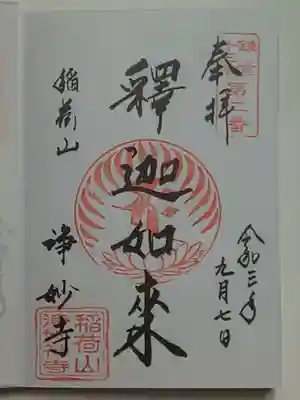 奉拝
鎌倉
第二番
令和三年
九月七日
釋迦如來
稲荷山
浄妙寺
稲荷山
浄妙寺